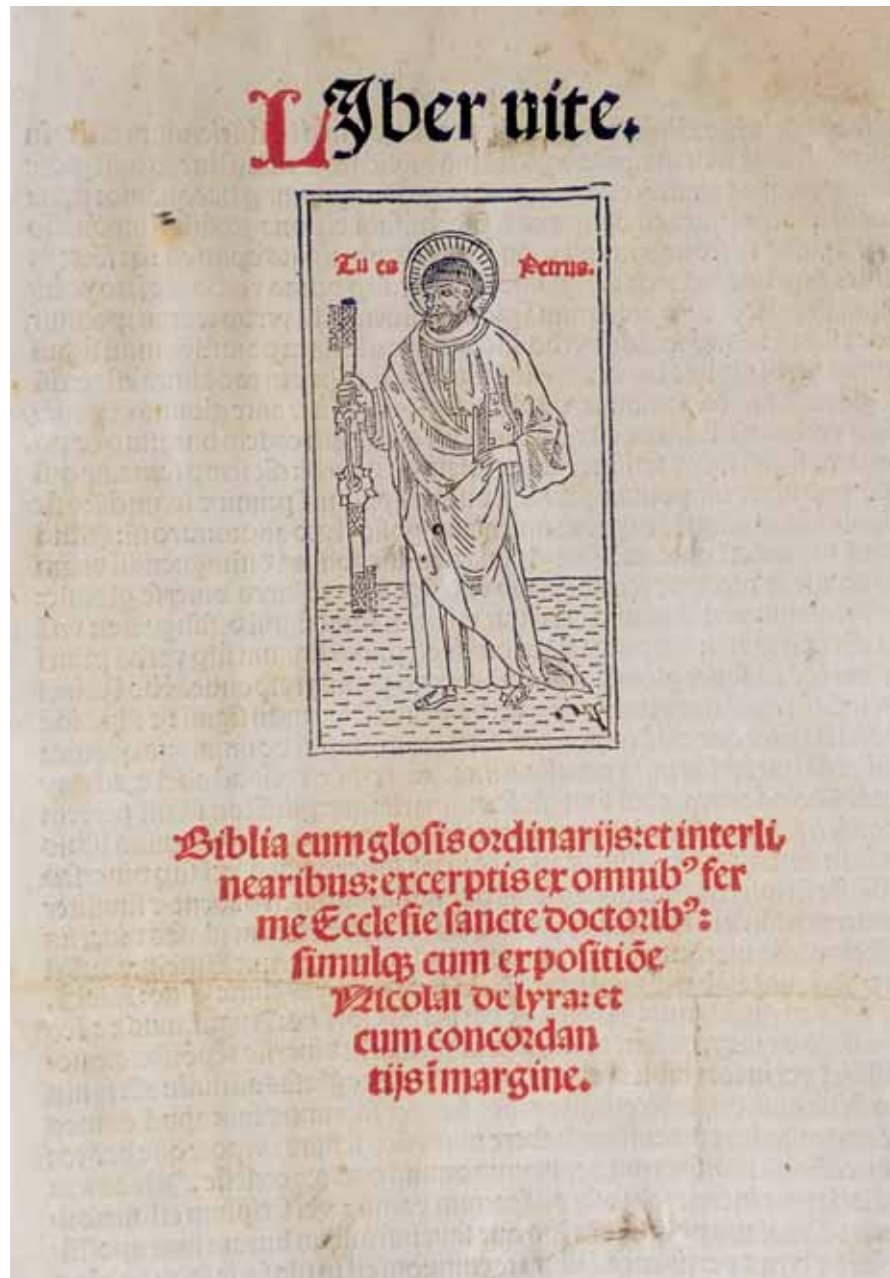 LIber uite.
Tu es Petrus.
Biblia cum glosis ordinarijs: et interli,
nearibus: excerptis ex omnibꝰ fer
me Ecclesie sancte doctoribꝰ:
simulqꝫ cum expositiõe
Nicolai de lyra: et
cum concordan
tijs ĩ margine.